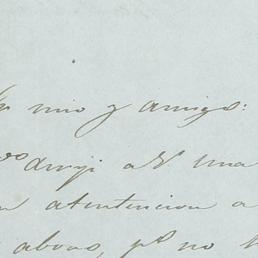 mio y amigo:
dirigi a V. una
atentencion a
abono, pa no